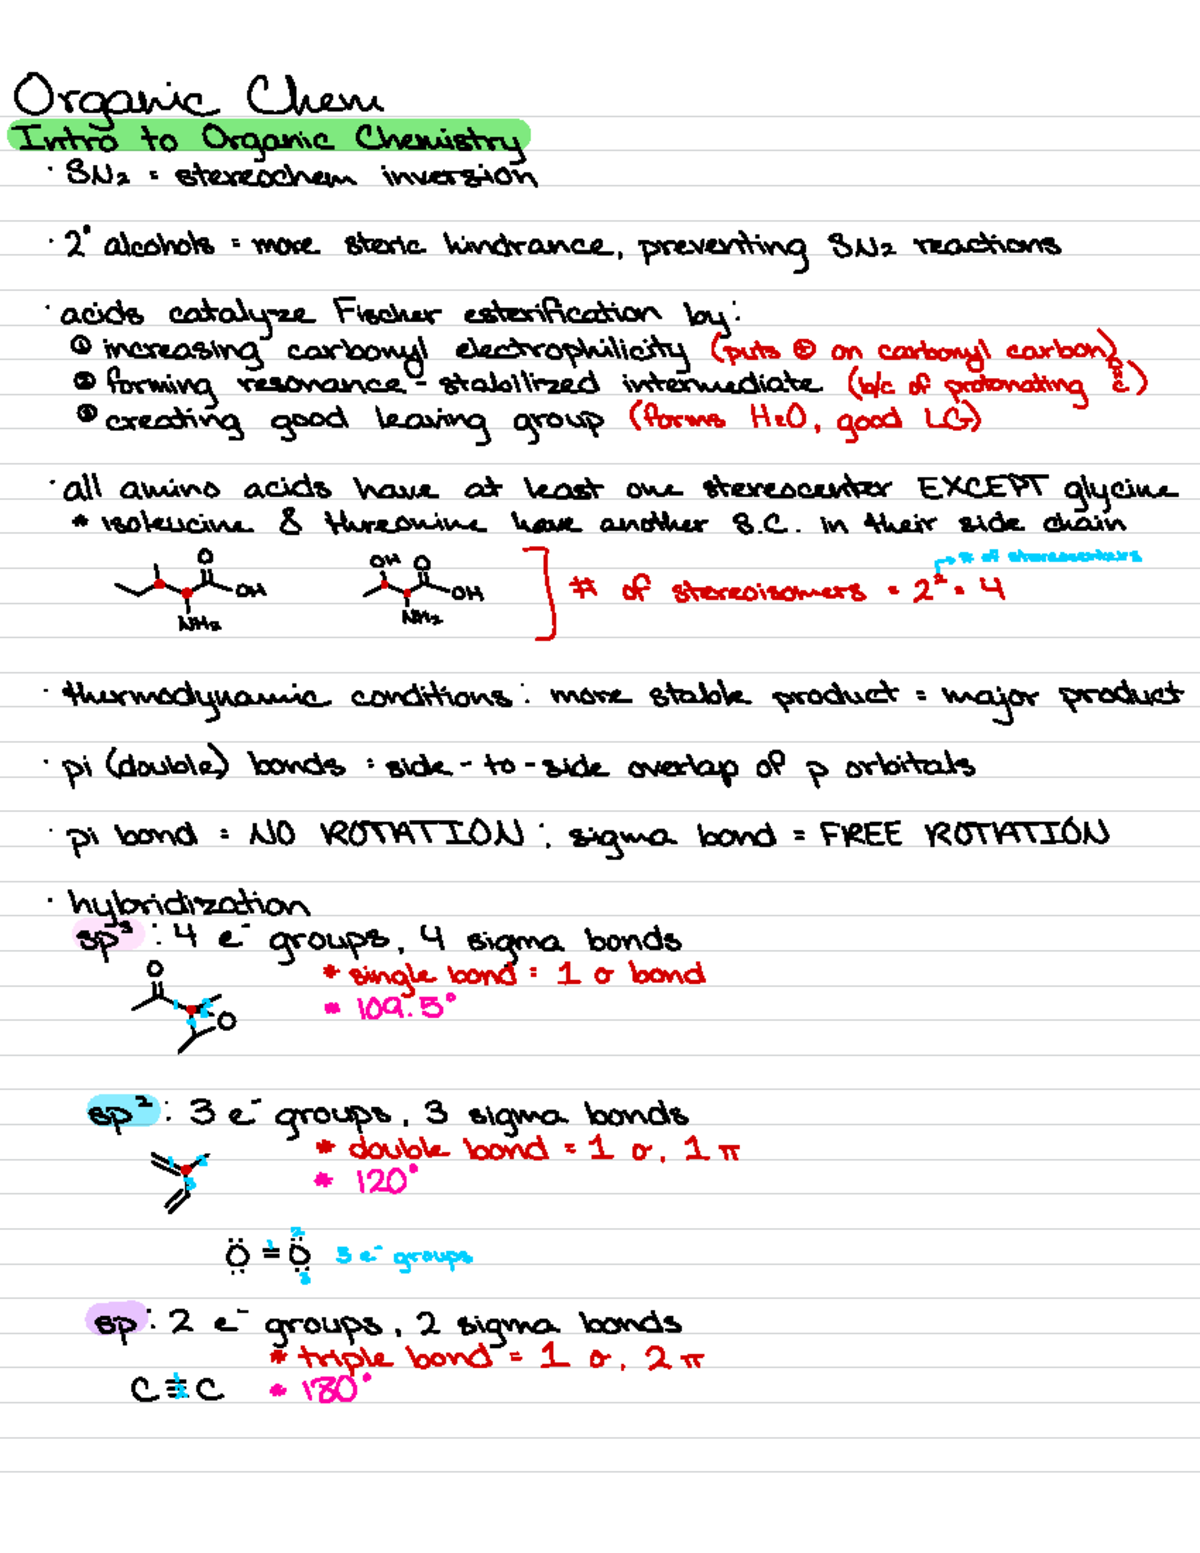 Organic Chem
Intro to Organic Chemistry
· SN2 = stereochem inversion
· 2° alcohols = more steric hindrance, preventing SN2 reactions
· acids catalyze Fischer esterification by:
① increasing carbonyl electrophilicity (puts ⊕ on carbonyl carbon)
② forming resonance-stabilized intermediate (b/c of protonating O=C)
③ creating good leaving group (forms H2O, good LG)
· all amino acids have at least one stereocenter EXCEPT glycine
* isoleucine & threonine have another S.C. in their side chain
O OH NH2
OH O OH NH2
# of stereoisomers = 2² = 4
→ # of stereocenters
· thermodynamic conditions: more stable product = major product
· pi (double) bonds: side-to-side overlap of p orbitals
· pi bond = NO ROTATION; sigma bond = FREE ROTATION
· hybridization
sp³: 4 e⁻ groups, 4 sigma bonds
* single bond = 1 σ bond
O 1 2 3 4 O
* 109.5°
sp²: 3 e⁻ groups, 3 sigma bonds
* double bond = 1 σ, 1 π
1 2 3
* 120°
O = O 1 2 3 3 e⁻ groups
sp: 2 e⁻ groups, 2 sigma bonds
* triple bond = 1 σ, 2 π
C ≡ C * 180°